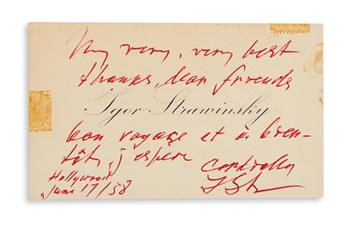 My very, very best
thanks, dear friends
Igor Strawinsky
bon voyage et à bien-
tôt, j'espère
Cordially
Hollywood
IStr
June 17/58